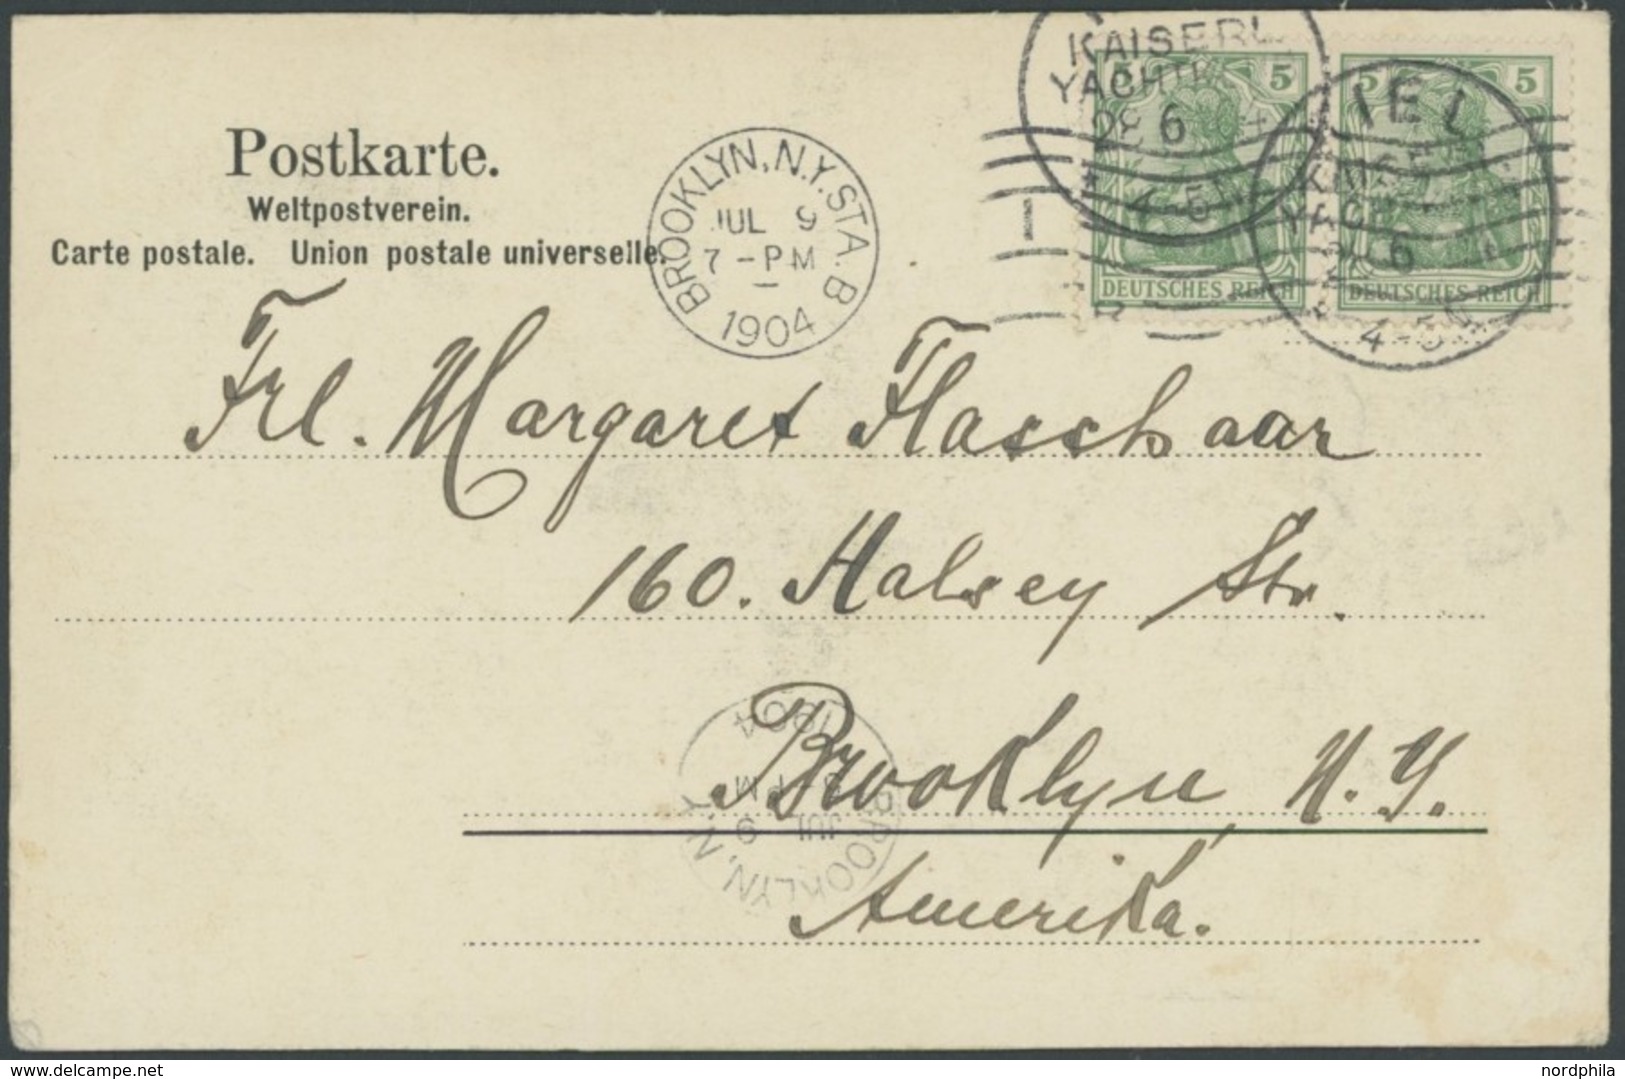 Postkarte.
Weltpostverein.
Carte postale. Union postale universelle.
BROOKLYN, N.Y. STA. B
JUL 9
7 - PM
1904
KAISERL.
YACHT
28 6
4-5
5 5
DEUTSCHES REICH
KIEL
YACHT
6
4-5
5 5
DEUTSCHES REICH
Frl. Margaret Flasshaar
160. Halsey Str.
Brooklyn N. Y.
Amerika.
BROOKLYN, N.Y.
JUL 9
PM
1904
delcampe.net
nordphila